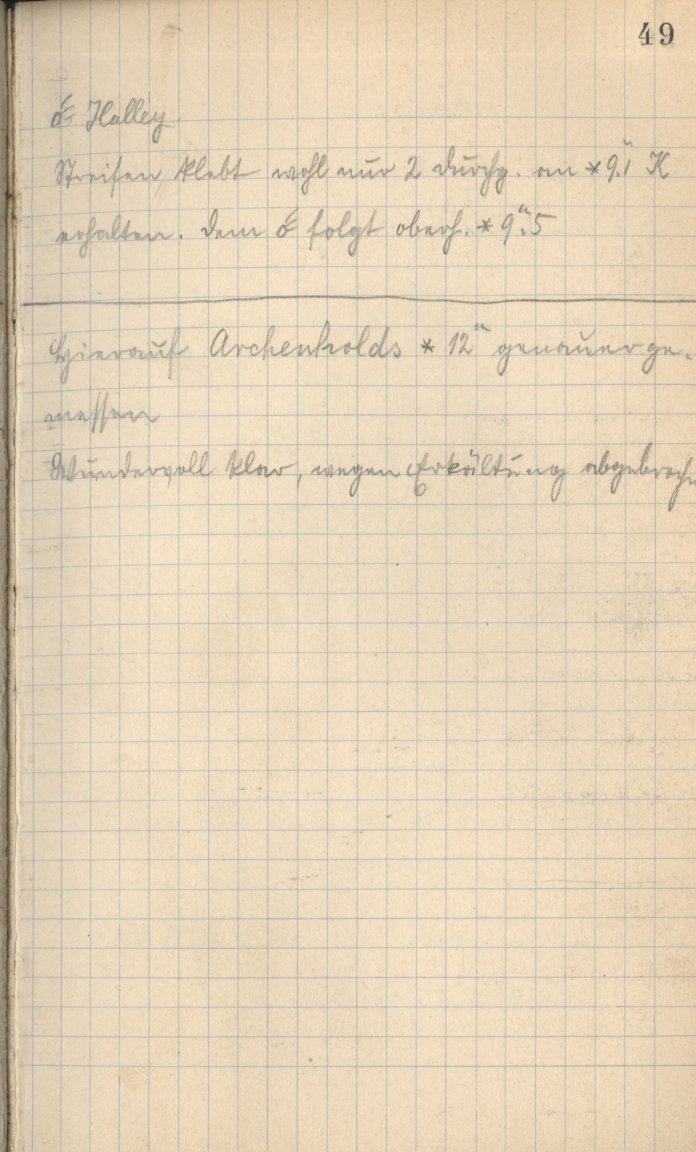 49
☄ Halley.
Streifen klebt wohl nur 2 Durchg. an * 9.ᵐ1 K
erhalten. Dem ☄ folgt oberh. * 9.ᵐ5
Hierauf Archenholds * 12ᵐ genauer ge-
messen
Wundervoll klar, wegen Erkältung abgebrochen